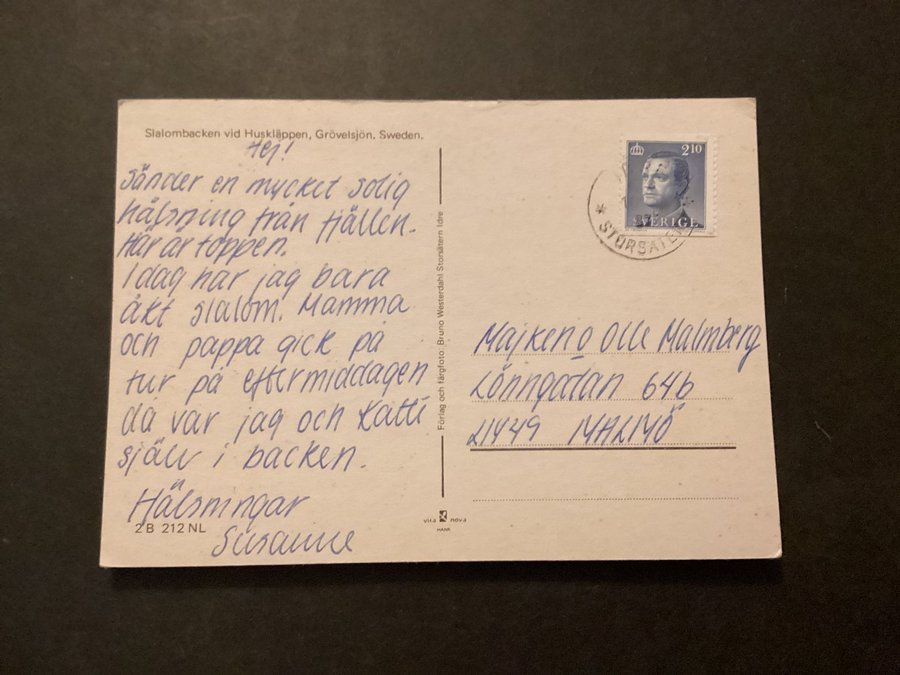 Slalombacken vid Huskläppen, Grövelsjön. Sweden.
Hej!
Sänder en mycket solig
hälsning från fjällen.
Här är toppen.
Idag har jag bara
åkt slalom. Mamma
och pappa gick på
tur på eftermiddagen
då var jag och Katti
själv i backen.
Hälsningar
Susanne
2 B 212 NL
Förlag och färgfoto: Bruno Westerdahl Storsätern Idre
vita nova
HANK
2.10
SVERIGE
* STORSÄTERN
Majken o Olle Malmberg
Lönngatan 64b
21449 MALMÖ